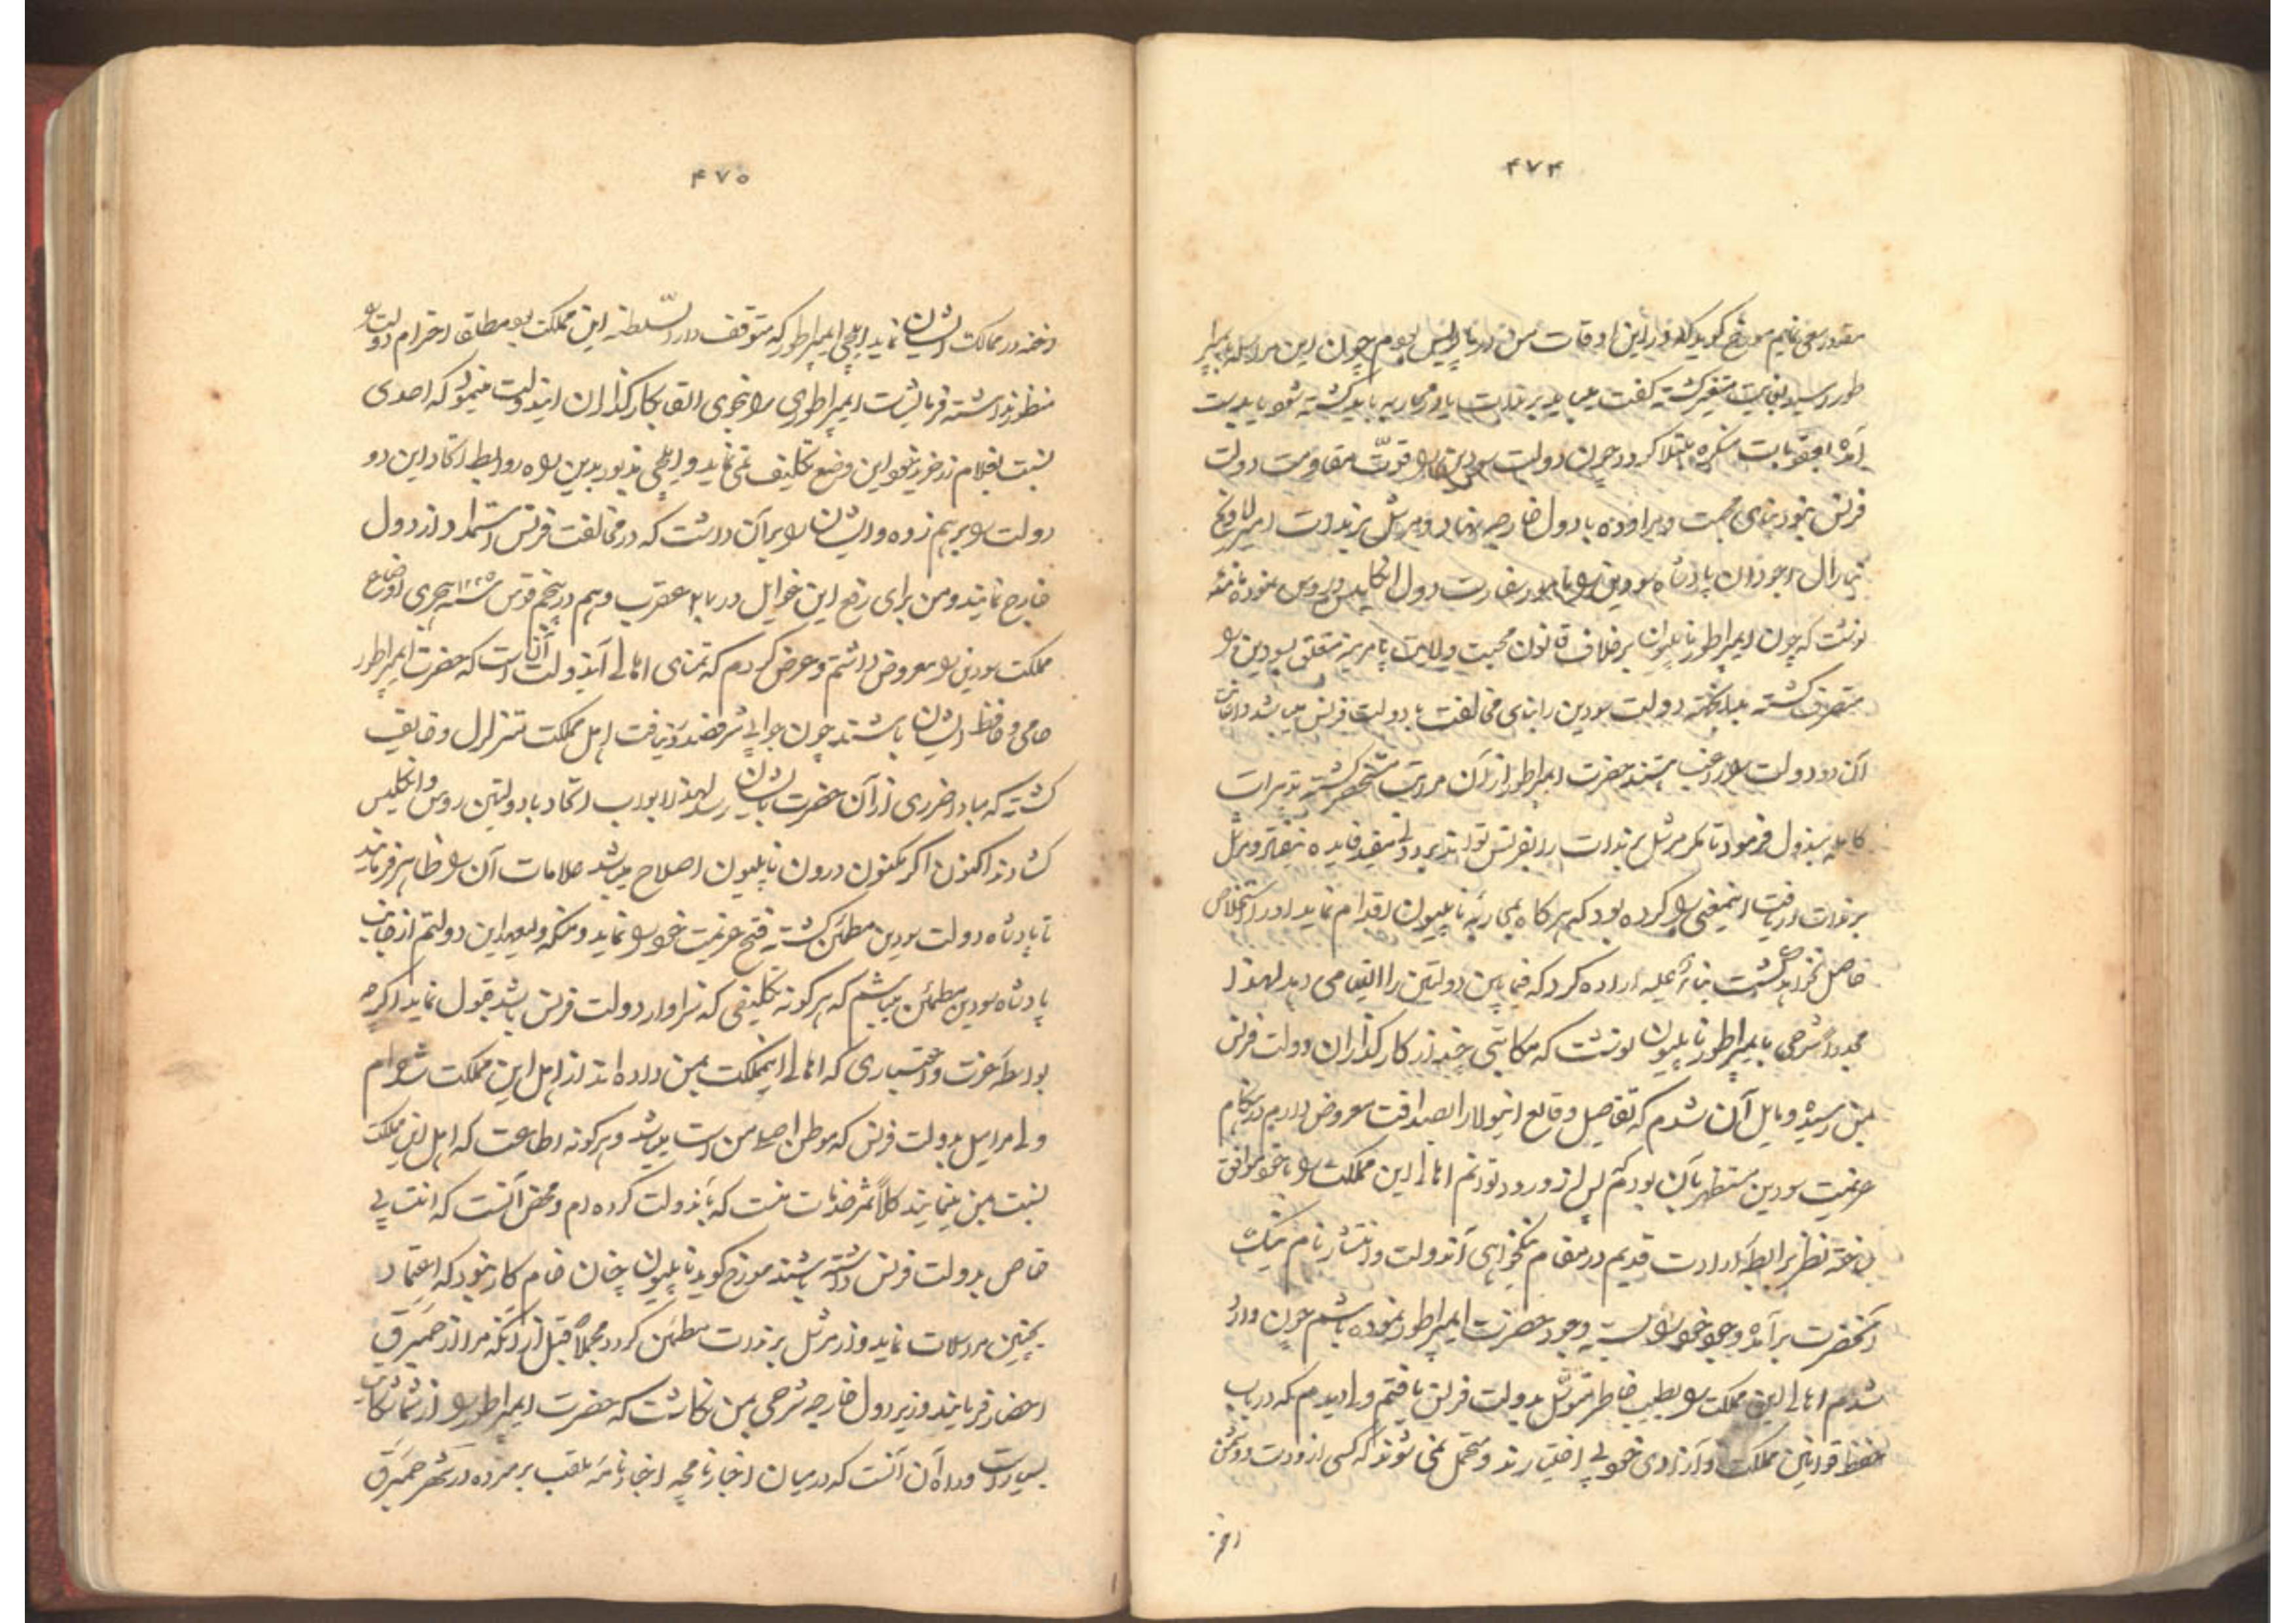 ۴۷۴
مقدور سعی نمایم مورخ گوید که در این اوقات من در پاریس بودم چون این مراسله بایمپرا
طور رسید بغایت متغیر گشته گفت میباید برندات یا در محاربه باید کشته شود یا بدست
آمده بعقوبات منکره مبتلا گردد چون دولت سودین را قوّت مقاومت دولت
فرنس نبود بنای محبت و مراوده با دول خارجه نهاد و مرشل برندات
جنرال پادشاه سودین را مامور سفارت دول انگلیس و روس نموده نامه
نوشت که چون ایمپراطور ناپلیون برخلاف قانون محبت ولایت پامرینه متعلق بسودین را
متصرف گشته دولت سودین را بنای مخالفت با دولت فرنس میباشد و اعانت
آن دو دولت را راغب هستند حضرت ایمپراطور از آن مراتب مستحضر گشته تدبیرات
کامله مبذول فرمود تا مگر مرشل برندات را بفرنس تواند برد ولی مفید فایده نیفتاد و مرشل
برندات دریافت اینمعنی را کرده بود که هرگاه بمحاربه ناپلیون اقدام نماید او را استخلاص
حاصل نخواهد گشت بناءً علیه اراده کرد که فیمابین دولتین را التیامی دهد لهذا
مجدداً شرحی بایمپراطور ناپلیون نوشت که مکاتیبی چند از کارگذاران دولت فرنس
بمن رسیده و مایل آن شدم که تفاصیل وقایع اینولا را بصداقت معروض دارم در هنگام
عزیمت سودین مستظهر بآن بودم که پس از ورود توانم اهالی این مملکت را با خود موافق
ساخته نظر برابطه ارادت قدیم در مقام نیکخواهی آندولت و انتشار نام نیک
آنحضرت برآمده وجود خود را بسته وجود حضرت ایمپراطور نموده باشم چون وارد
شدم اهالی این مملکت را بطیب خاطر متوسّل بدولت فرنس یافتم ولی دیدم که در باب
حفظ قوانین مملکت و آزادی خود بی اختیارند و متحمل نمی شوند که کسی از دوست و دشمن
رخنه
۴۷۵
رخنه در ممالک ایشان نماید ایلچی ایمپراطور که متوقف دارالسّلطنه این مملکت بود مطلقا احترام دولت را
منظور نداشته فرمایشات ایمپراطوری را بنحوی القا بکارگذاران ایندولت مینمود که احدی
نسبت بغلام زرخرید خود این وضع تکلیف نمی نماید و ایلچی مذبور بدین راه روابط اتحاد این دو
دولت را برهم زده و ایشان را بر آن داشت که در مخالفت فرنس استمداد از دول
خارج نمایند و من برای رفع این غوایل در ماه عقرب و هم در پنجم قوس سنه ۱۲۲۵ هجری اوضاع
مملکت سودین را معروض داشتم و عرض کردم که تمنای اهالی آندولت آنست که حضرت ایمپراطور
حامی و حافظ ایشان باشند چون جوابی شرف صدور نیافت اهل مملکت متزلزل و خایف
گشته که مبادا ضرری از آن حضرت بایشان رسد لهذا ابواب اتحاد با دولتین روس و انگلیس
گشادند اکنون اگر مکنون درون ناپلیون اصلاح میباشد علامات آن را ظاهر فرمایند
تا پادشاه دولت سودین مطمئن گشته فتح عزیمت خود را نماید و منکه ولیعهد این دولتم از جانب
پادشاه سودین مطمئن میباشم که هرگونه تکلیفی که سزاوار دولت فرنس باشد قبول نماید اگرچه
بواسطه عزت و اختیاری که اهالی اینمملکت بمن داده اند از اهل این مملکت شده ام
ولی مرا میل بدولت فرنس که موطن اصلی من است میباشد و هرگونه اطاعت که اهل این مملکت
نسبت بمن مینمایند کلاً ثمر خدمات منست که بآندولت کرده ام و محض آنست که انتسابی
خاص بدولت فرنس داشته باشند مورخ گوید ناپلیون چنان خام کار نبود که اعتماد
بچنین مراسلات نماید و از مرشل برندات مطمئن گردد مجملاً قبل از آنکه مرا از حمبرق
احضار فرمایند وزیر دول خارجه شرحی بمن نگاشت که حضرت ایمپراطور را از شما شکایت
بسیار است و راه آن آنست که در میان اخبارنامچه اخبارنامه ملقب بر مرده در شهر حمبرق